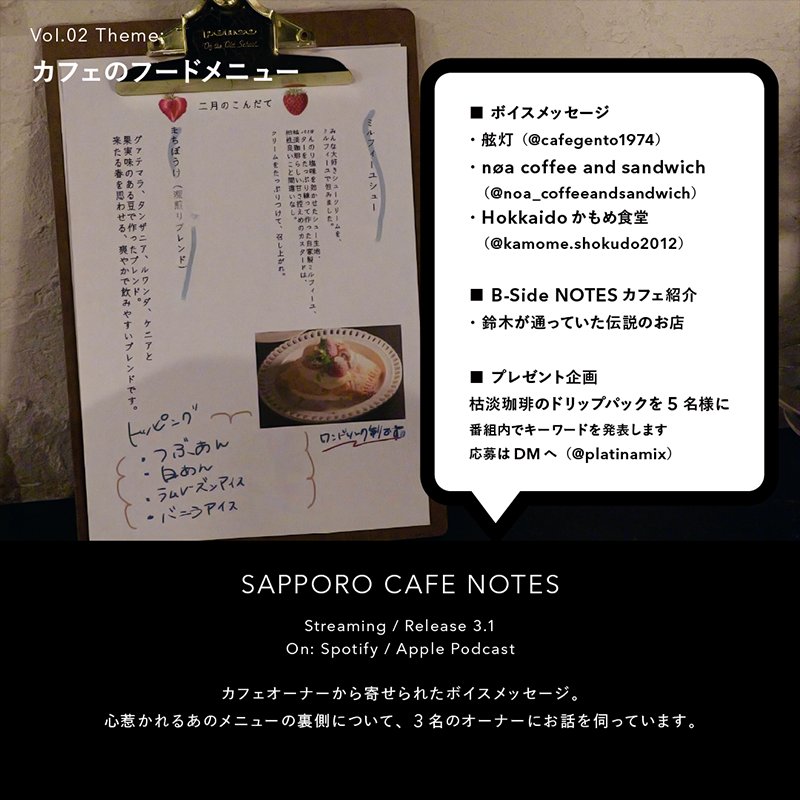 Vol.02 Theme:
カフェのフードメニュー
二月のこんだて
ミルフィーユシュー
みんな大好きシュークリームを、
ミルフィーユで包みました。
ほんのり塩味を効かせたシュー生地、
バターをたっぷり練って作った自家製ミルフィーユ、
枯淡珈琲らしい甘さ控えめのカスタードは、
相性良いこと間違いなし。
クリームをたっぷりつけて、召し上がれ。
まちぼうけ（深煎りブレンド）
グァテマラ、タンザニア、ルワンダ、ケニアと
果実味のある豆で作ったブレンド。
来たる春を思わせる、爽やかで飲みやすいブレンドです。
トッピング
・つぶあん
・白あん
・ラムレーズンアイス
・バニラアイス
■ ボイスメッセージ
・舷灯（@cafegento1974）
・nøa coffee and sandwich
（@noa_coffeeandsandwich）
・Hokkaido かもめ食堂
（@kamome.shokudo2012）
■ B-Side NOTES カフェ紹介
・鈴木が通っていた伝説のお店
■ プレゼント企画
枯淡珈琲のドリップパックを 5 名様に
番組内でキーワードを発表します
応募は DM へ（@platinamix）
SAPPORO CAFE NOTES
Streaming / Release 3.1
On: Spotify / Apple Podcast
カフェオーナーから寄せられたボイスメッセージ。
心惹かれるあのメニューの裏側について、3 名のオーナーにお話を伺っています。